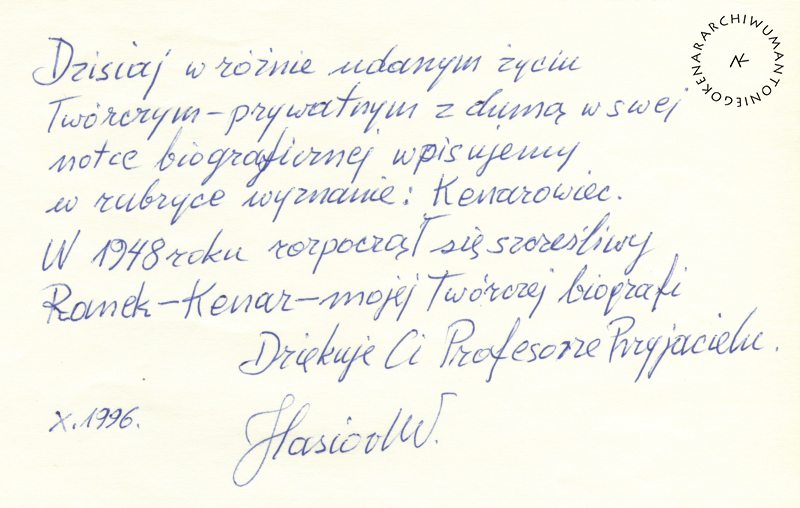 Dzisiaj w różnie udanym życiu
Twórczym-prywatnym z dumą w swej
notce biograficznej wpisujemy
w rubryce wyznanie: Kenarowiec.
W 1948 roku rozpoczął się szcześliwy
Ranek-Kenar-mojej Twórczej biografi
Dziękuje Ci Profesorze Przyjacielu.
X.1996.
Hasior W.
ARCHIWUM ANTONIEGO KENARA
AK